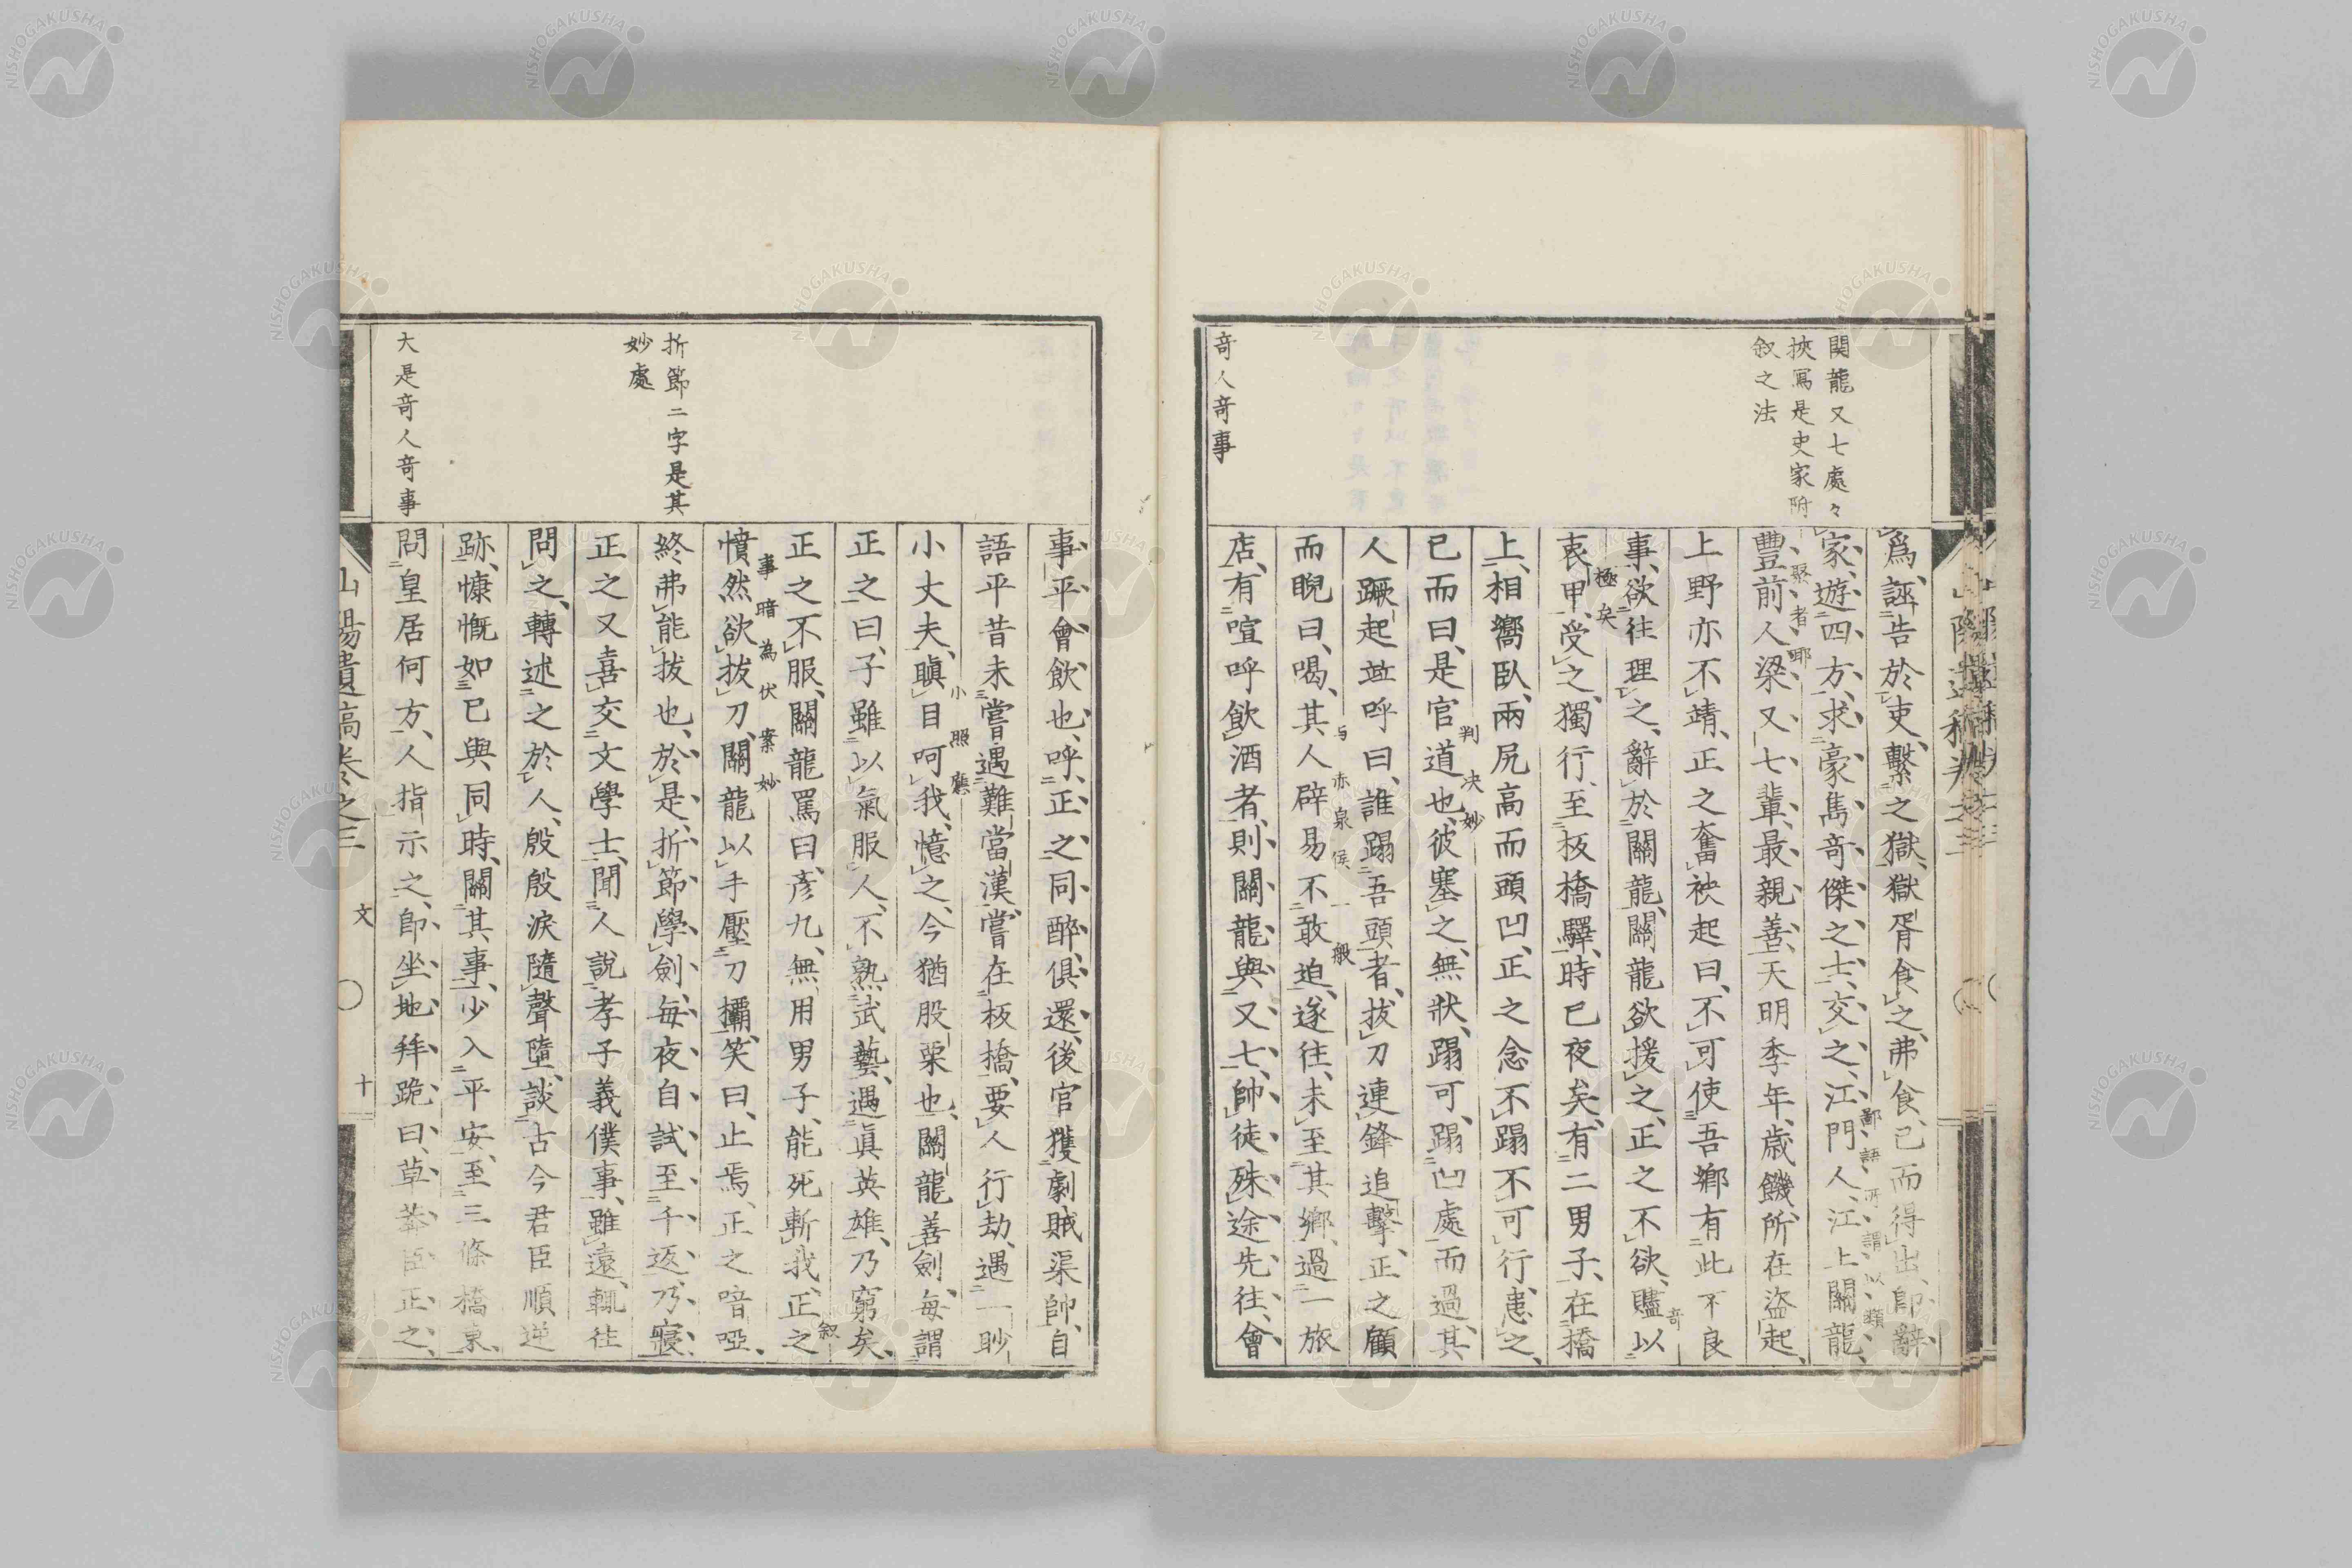 関龍又七處々
挾寫是史家附
叙之法
爲誣告於吏、繫之獄、獄胥食之、弗食、已而得出、即辭
家、遊四方、求豪雋奇傑之士、交之、江門人、江上關龍、
鄙語所謂以類
聚者耶
豐前人梁又七輩、最親善、天明季年、歲饑、所在盜起、
上野亦不靖、正之奮袂起曰、不可使吾鄉有此不良
事、欲往理之、辭於關龍、關龍欲援之、正之不欲、贐以
奇
極矣
衷甲、受之、獨行、至板橋驛、時已夜矣、有二男子、在橋
上、相嚮臥、兩尻高而頭凹、正之念不蹋不可行、恚之、
已而曰、是官道也、彼塞之、無狀、蹋可、蹋凹處而過、其
判决妙
人蹶起竝呼曰、誰蹋吾頭者、拔刀連鋒追擊、正之顧
而睨曰、喝、其人辟易不敢迫、遂往、未至其鄉、過一旅
与赤泉侯一般
奇人奇事
店、有喧呼飲酒者、則關龍與又七、帥徒殊途先往、會
事平、會飲也、呼正之同醉、俱還、後官獲劇賊渠帥、自
語平昔未嘗遇難當漢、嘗在板橋、要人行劫、遇一眇
小丈夫、瞋目呵我、憶之、今猶股栗也、關龍善劍、每謂
小照應
正之曰、子雖以氣服人、不熟武藝、遇眞英雄、乃窮矣、
正之不服、關龍罵曰、彥九、無用男子、能死斬我、正之
叙
事暗為伏案妙
憤然欲拔刀、關龍以手壓刀欛、笑曰、止焉、正之喑啞、
折節二字是其
妙處
終弗能拔也、於是折節學劍、每夜自試至千返乃寢、
正之又喜交文學士、聞人說孝子義僕事、雖遠、輒往
問之、轉述之於人、殷殷淚隨聲墮、談古今君臣順逆
跡、慷慨如己與同時、關其事、少入平安、至三條橋東、
大是奇人奇事
問皇居何方、人指示之、即坐地拜跪曰、草莽臣正之、
山陽遺稿卷之三 文 十